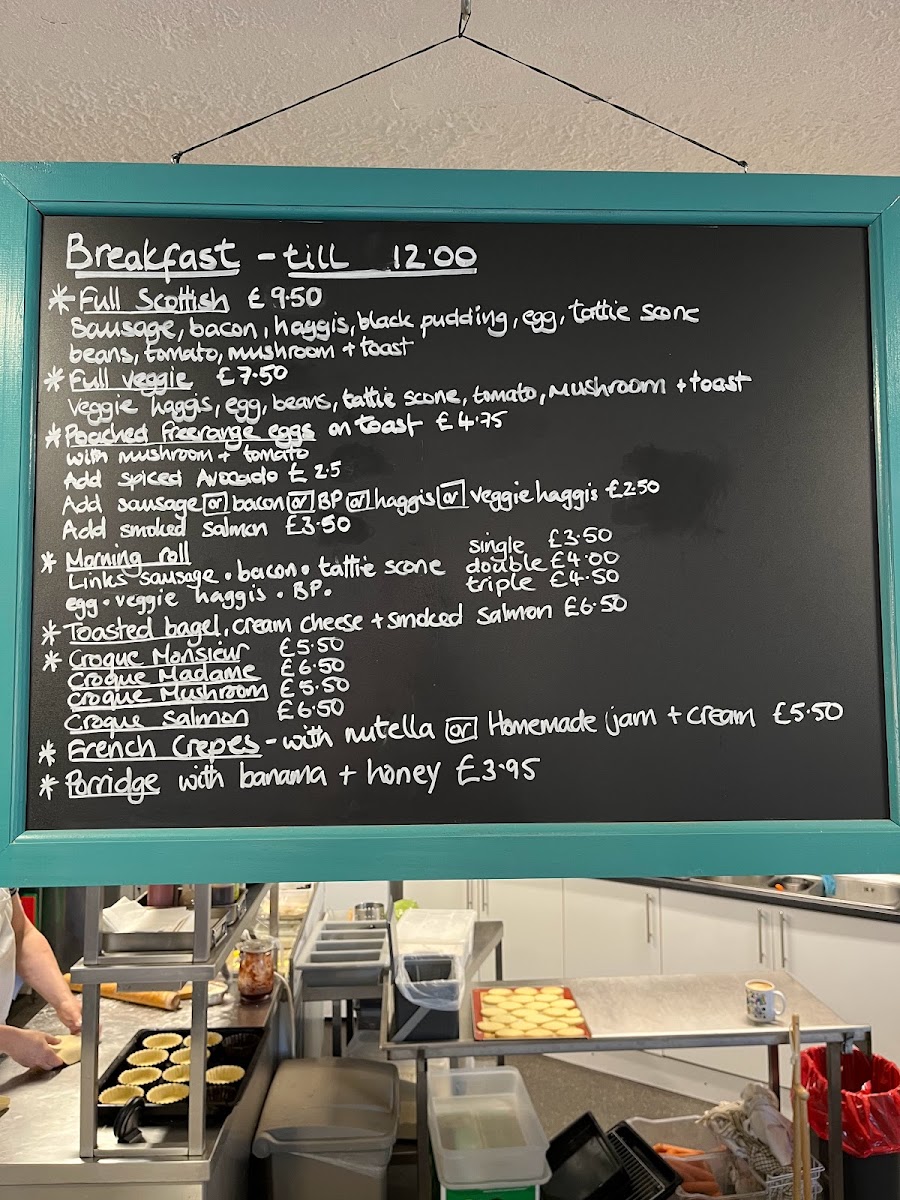 Breakfast - till 12.00
* Full Scottish £9.50
Sausage, bacon, haggis, black pudding, egg, tattie scone
beans, tomato, mushroom + toast
* Full veggie £7.50
Veggie haggis, egg, beans, tattie scone, tomato, mushroom + toast
* Poached freerange eggs on toast £4.75
with mushroom + tomato
Add spiced Avocado £2.5
Add sausage or bacon or BP or haggis or veggie haggis £2.50
Add smoked salmon £3.50
* Morning roll single £3.50
Links sausage • bacon • tattie scone double £4.00
egg • veggie haggis • BP. triple £4.50
* Toasted bagel, cream cheese + smoked salmon £6.50
* Croque Monsieur £5.50
Croque Madame £6.50
Croque Mushroom £5.50
Croque Salmon £6.50
* French Crepes - with nutella or Homemade jam + cream £5.50
* Porridge with banana + honey £3.95